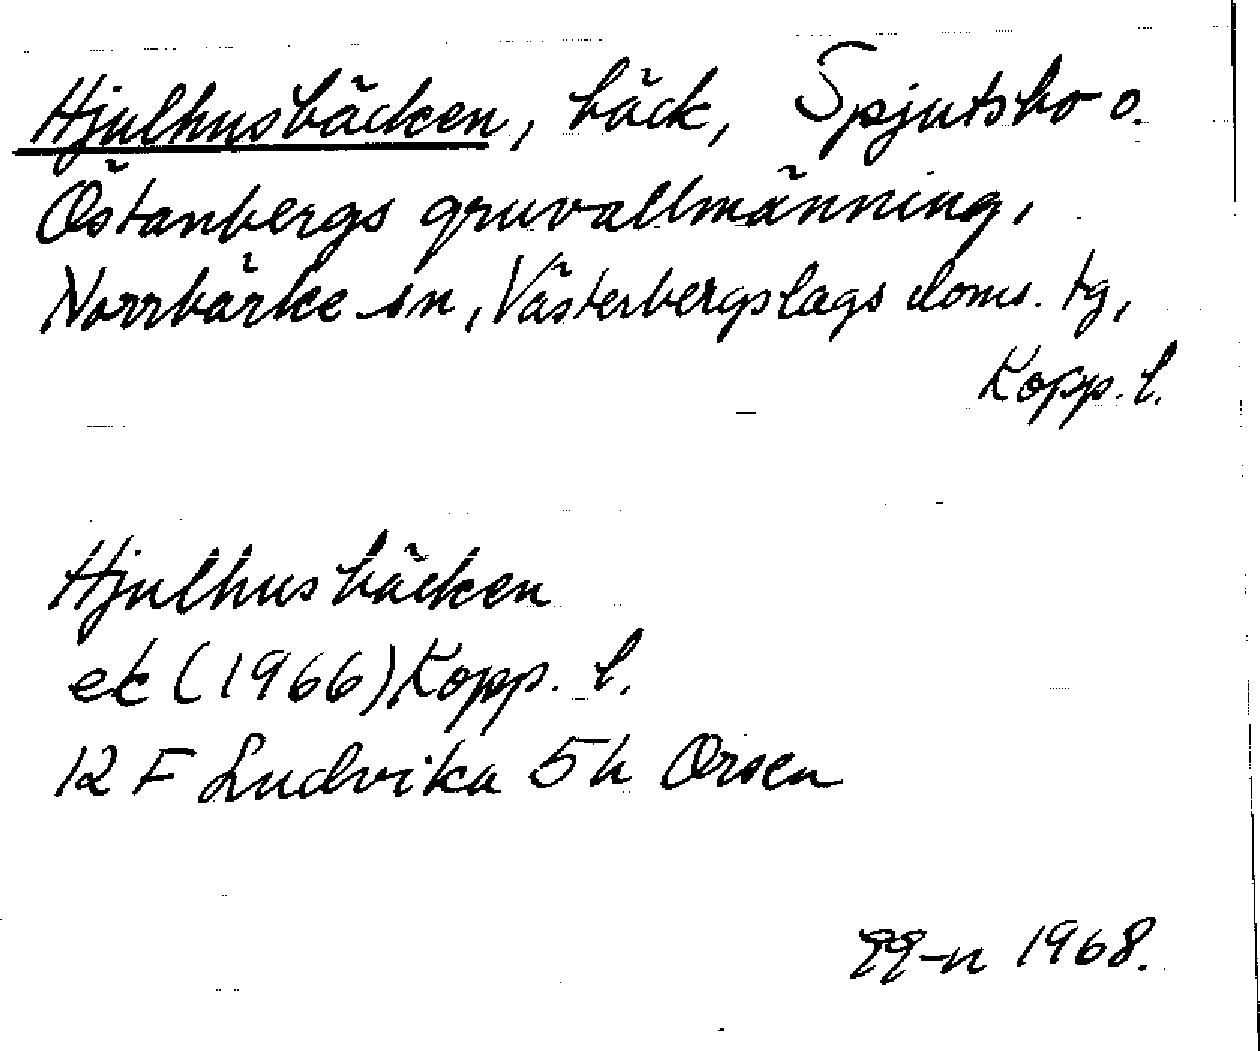 Hjulhusbäcken, bäck, Spjutsbo o.
Östanbergs gruvallmänning,
Norrbärke sn, Västerbergslags doms. tg,
Kopp. l.
Hjulhusbäcken
ek (1966) Kopp. l.
12 F Ludvika 5h Orsen
1968.